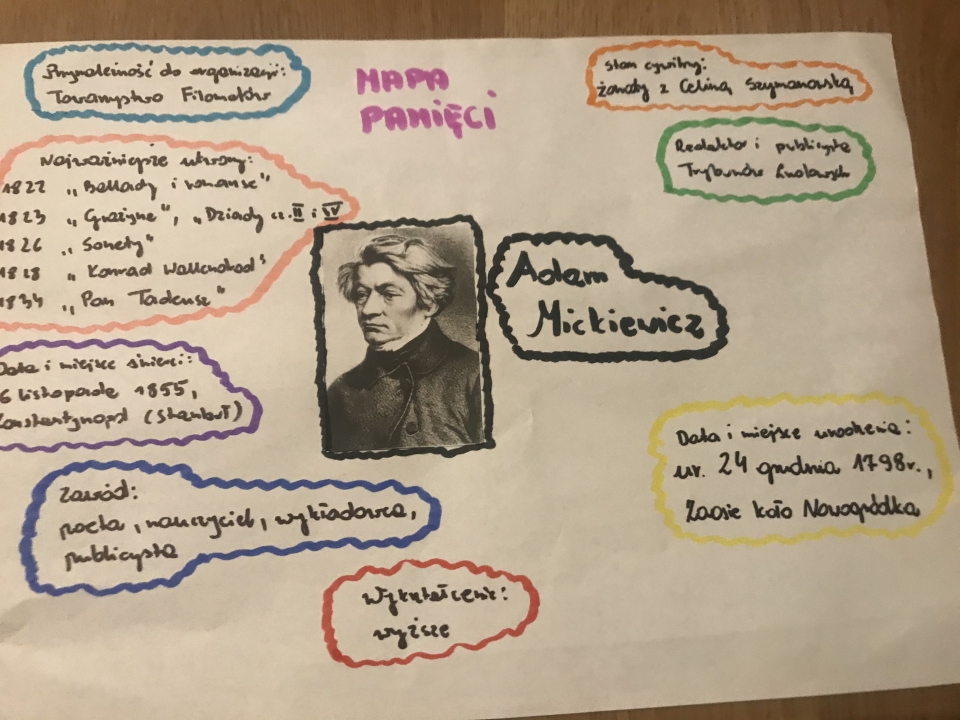 MAPA
PAMIĘCI
Przynależność do organizacji:
Towarzystwo Filomatów
Stan cywilny:
żonaty z Celiną Szymanowską
Redaktor i publicysta
Trybunów Ludowych
Najważniejsze utwory:
1822 „Ballady i romanse"
1823 „Grażyna", „Dziady cz. II i IV
1826 „Sonety"
1828 „Konrad Wallenrod"
1834 „Pan Tadeusz"
Adam
Mickiewicz
Data i miejsce śmierci:
6 listopada 1855,
Konstantynopol (Stambuł)
Data i miejsce urodzenia:
ur. 24 grudnia 1798r.,
Zaosie koło Nowogródka
Zawód:
poeta, nauczyciel, wykładowca,
publicysta
Wykształcenie:
wyższe